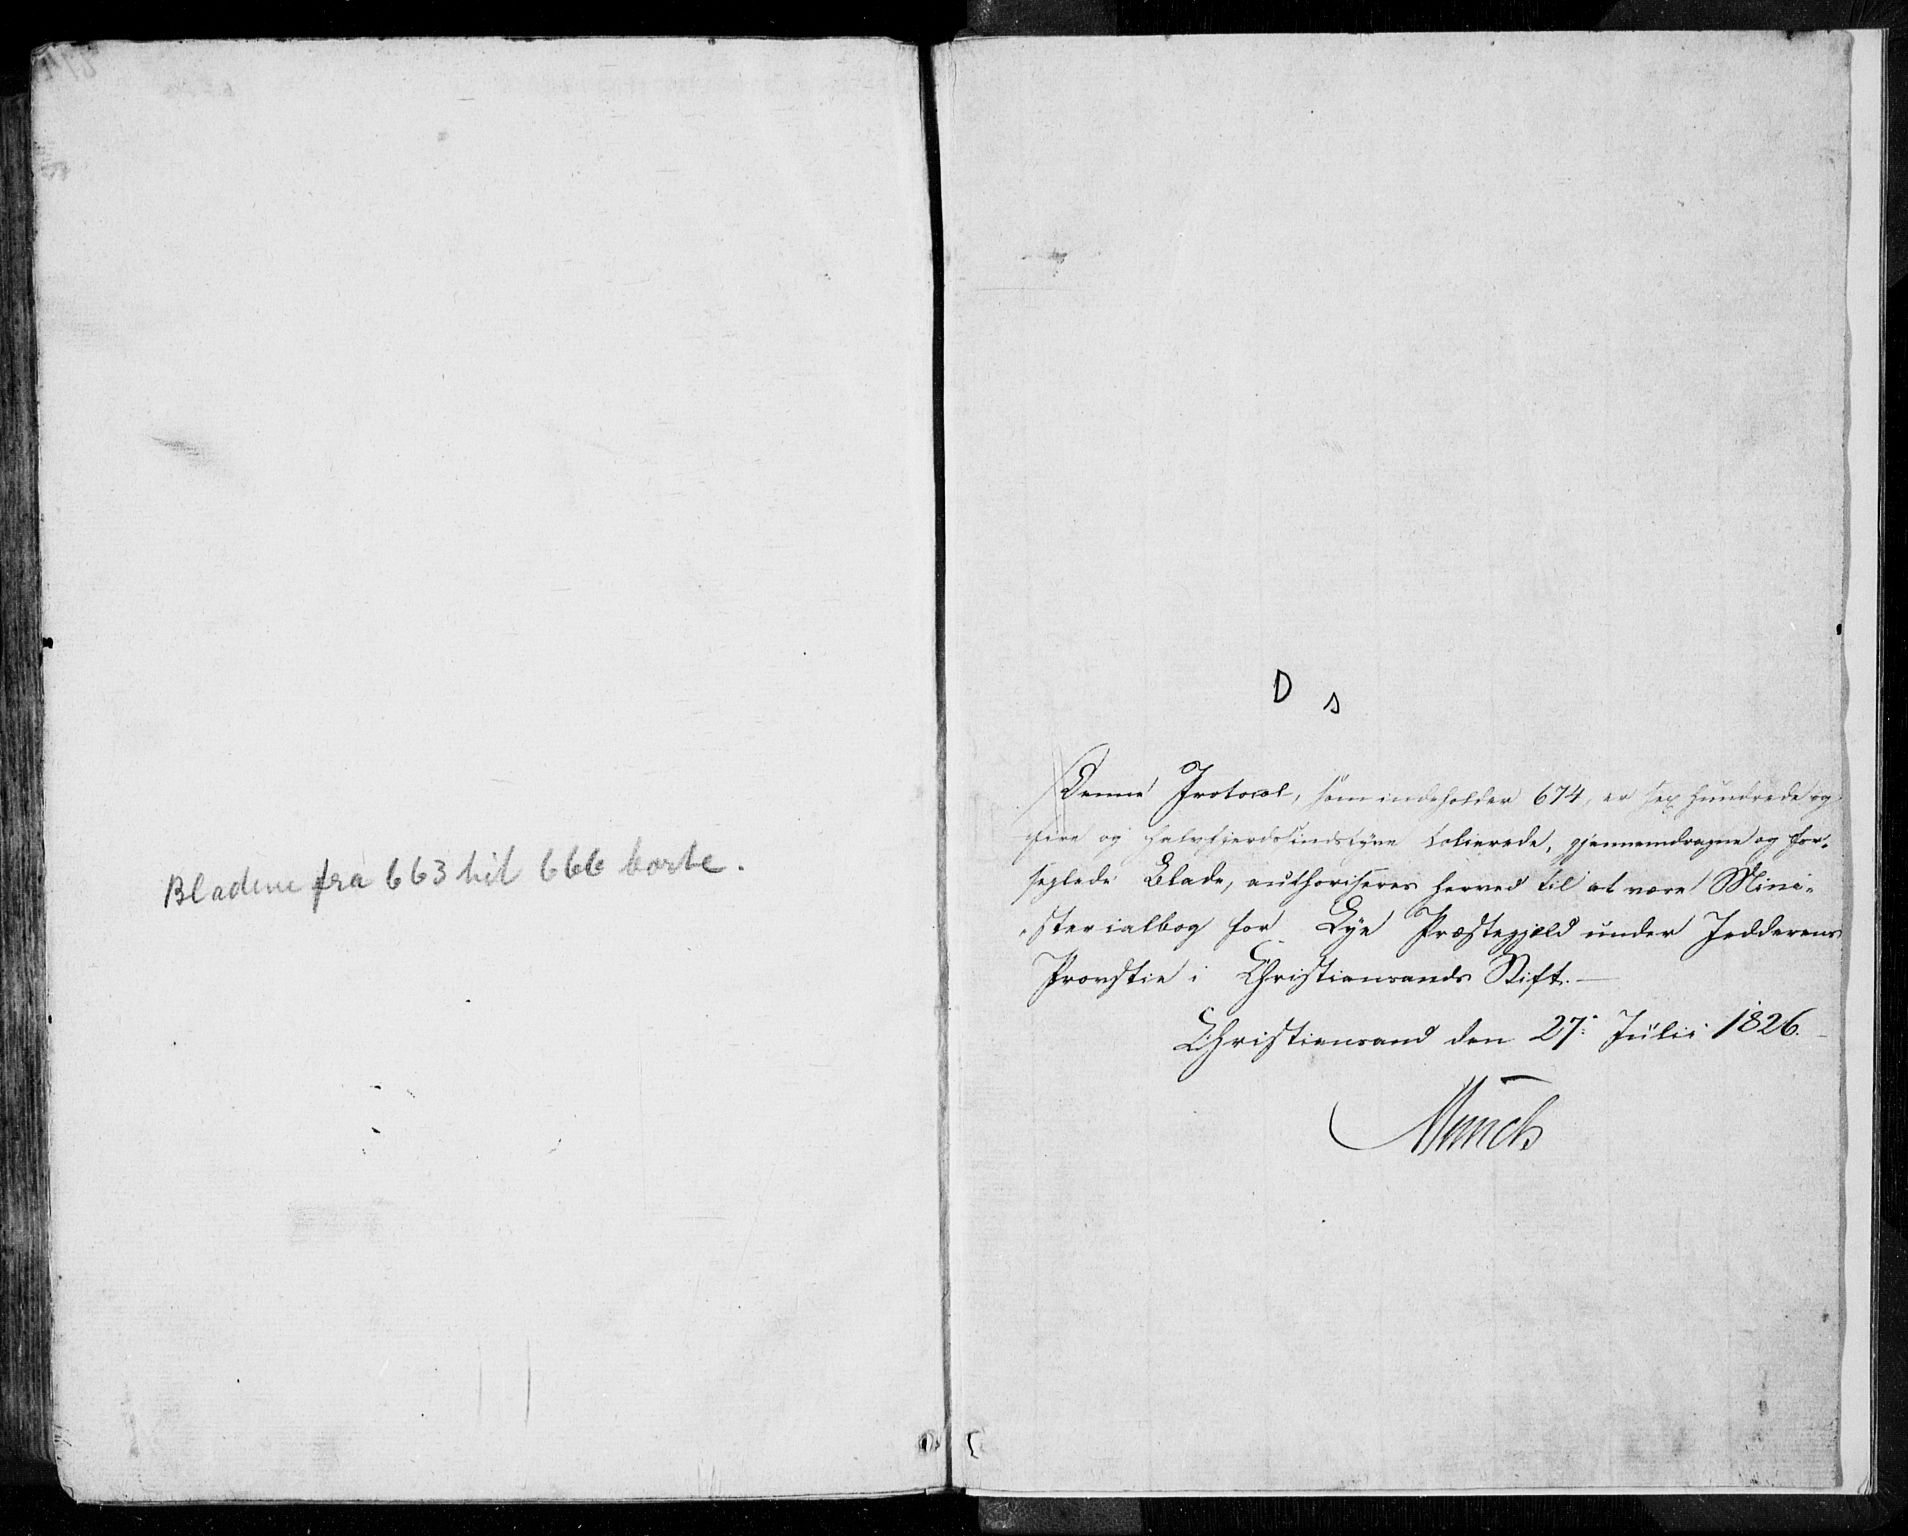 Bladene fra 663 til 666 borte.
D s
Denne Protocol, som indeholder 674, er sex hundrede og
fire og halvfjerdsindstyve folierede, gjennemdragne og for-
seglede Blade, authoriseres herved til at være Mini-
sterialbog for Lye Præstegjeld under Jedderens
Provstie i Christiansands Stift. —
Christiansand den 27. Julii 1826. —
Munch